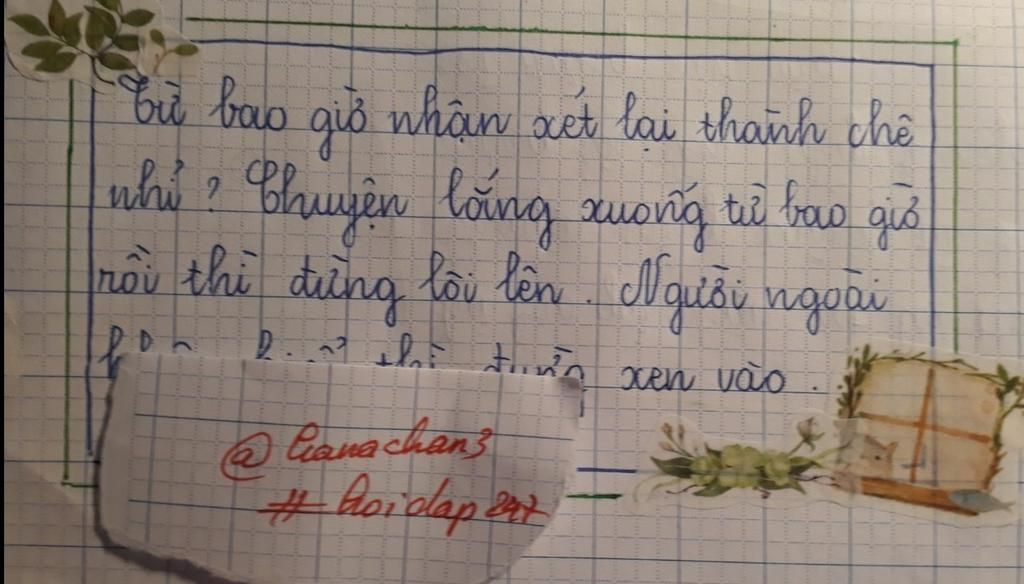 Từ bao giờ nhận xét lại thành chê
nhỉ? Chuyện lắng xuống từ bao giờ
rồi thì đừng lôi lên. Người ngoài
thì đừng xen vào.
@
# hoidap247